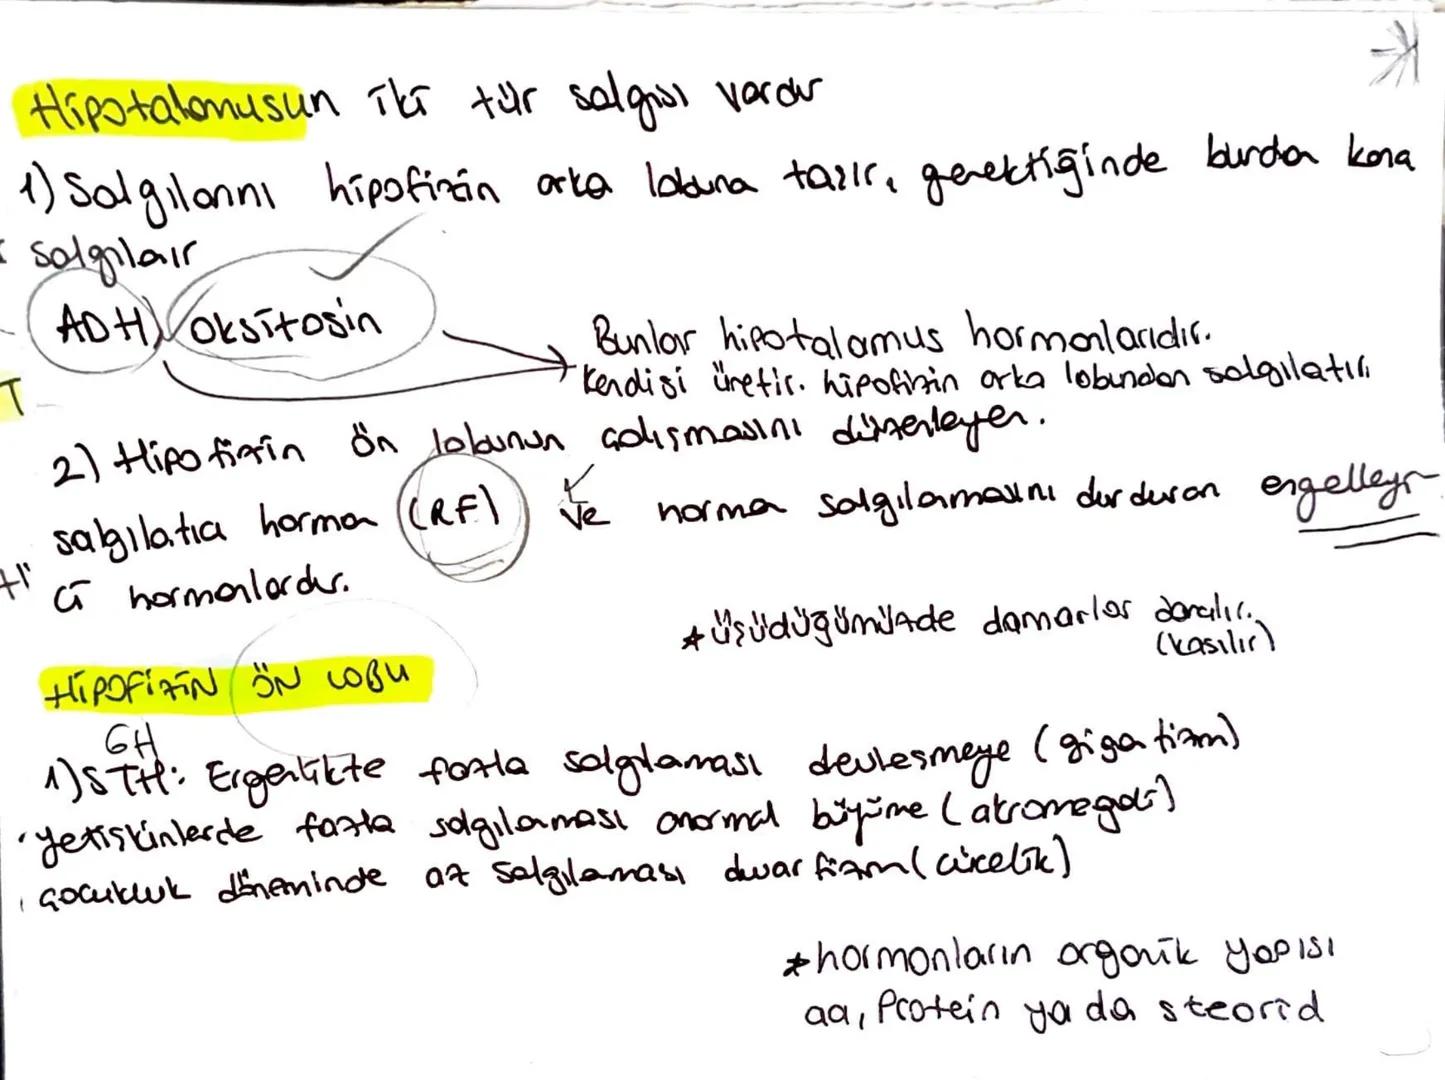 Hipotalamusun iki tür salgısı vardır
1) Salgılarını hipofizin arka lobuna taşır, gerektiğinde burdan kana
salgılar
ADH, Oksitosin
Bunlar hipotalamus hormonlarıdır.
Kendisi üretir. hipofizin arka lobundan salgılatır.
2) Hipofizin Ön lobunun çalışmasını düzenleyen.
salgılatıcı hormon (RF) ve hormon salgılanmasını durduran engelleyi
ci hormonlardır.
* Üşüdüğümüzde damarlar daralır.
(kasılır)
HİPOFİZİN ÖN LOBU
GH
1) STH: Ergenlikte fazla salgılaması devleşmeye (gigatizm)
yetişkinlerde fazla salgılaması anormal büyüme (akromegali)
çocukluk döneminde az salgılaması dwarfizm (cücelik)
* hormonların organik yapısı
aa, Protein ya da steorid